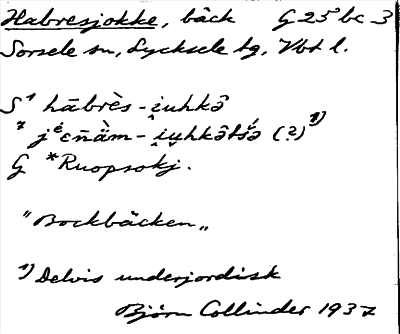 Habresjokke, bäck G 25 bc 3
Sorsele sn, Lycksele tg, Vbt l.
S¹ hābrès-i̯uhkə̂
" jéεñä̀m-i̯u̯hkə̂tśə (?) ¹⁾
G *Ruopsokj.
"Bockbäcken"
¹⁾ Delvis underjordisk
Björn Collinder 1937